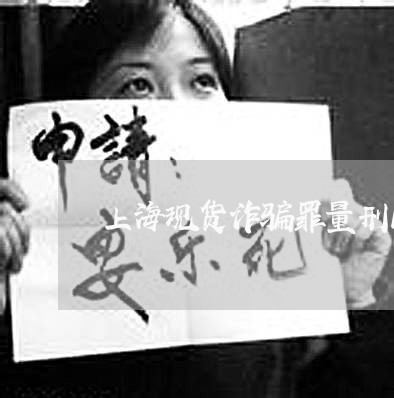 申請：
上海现货诈骗罪量刑
安乐死